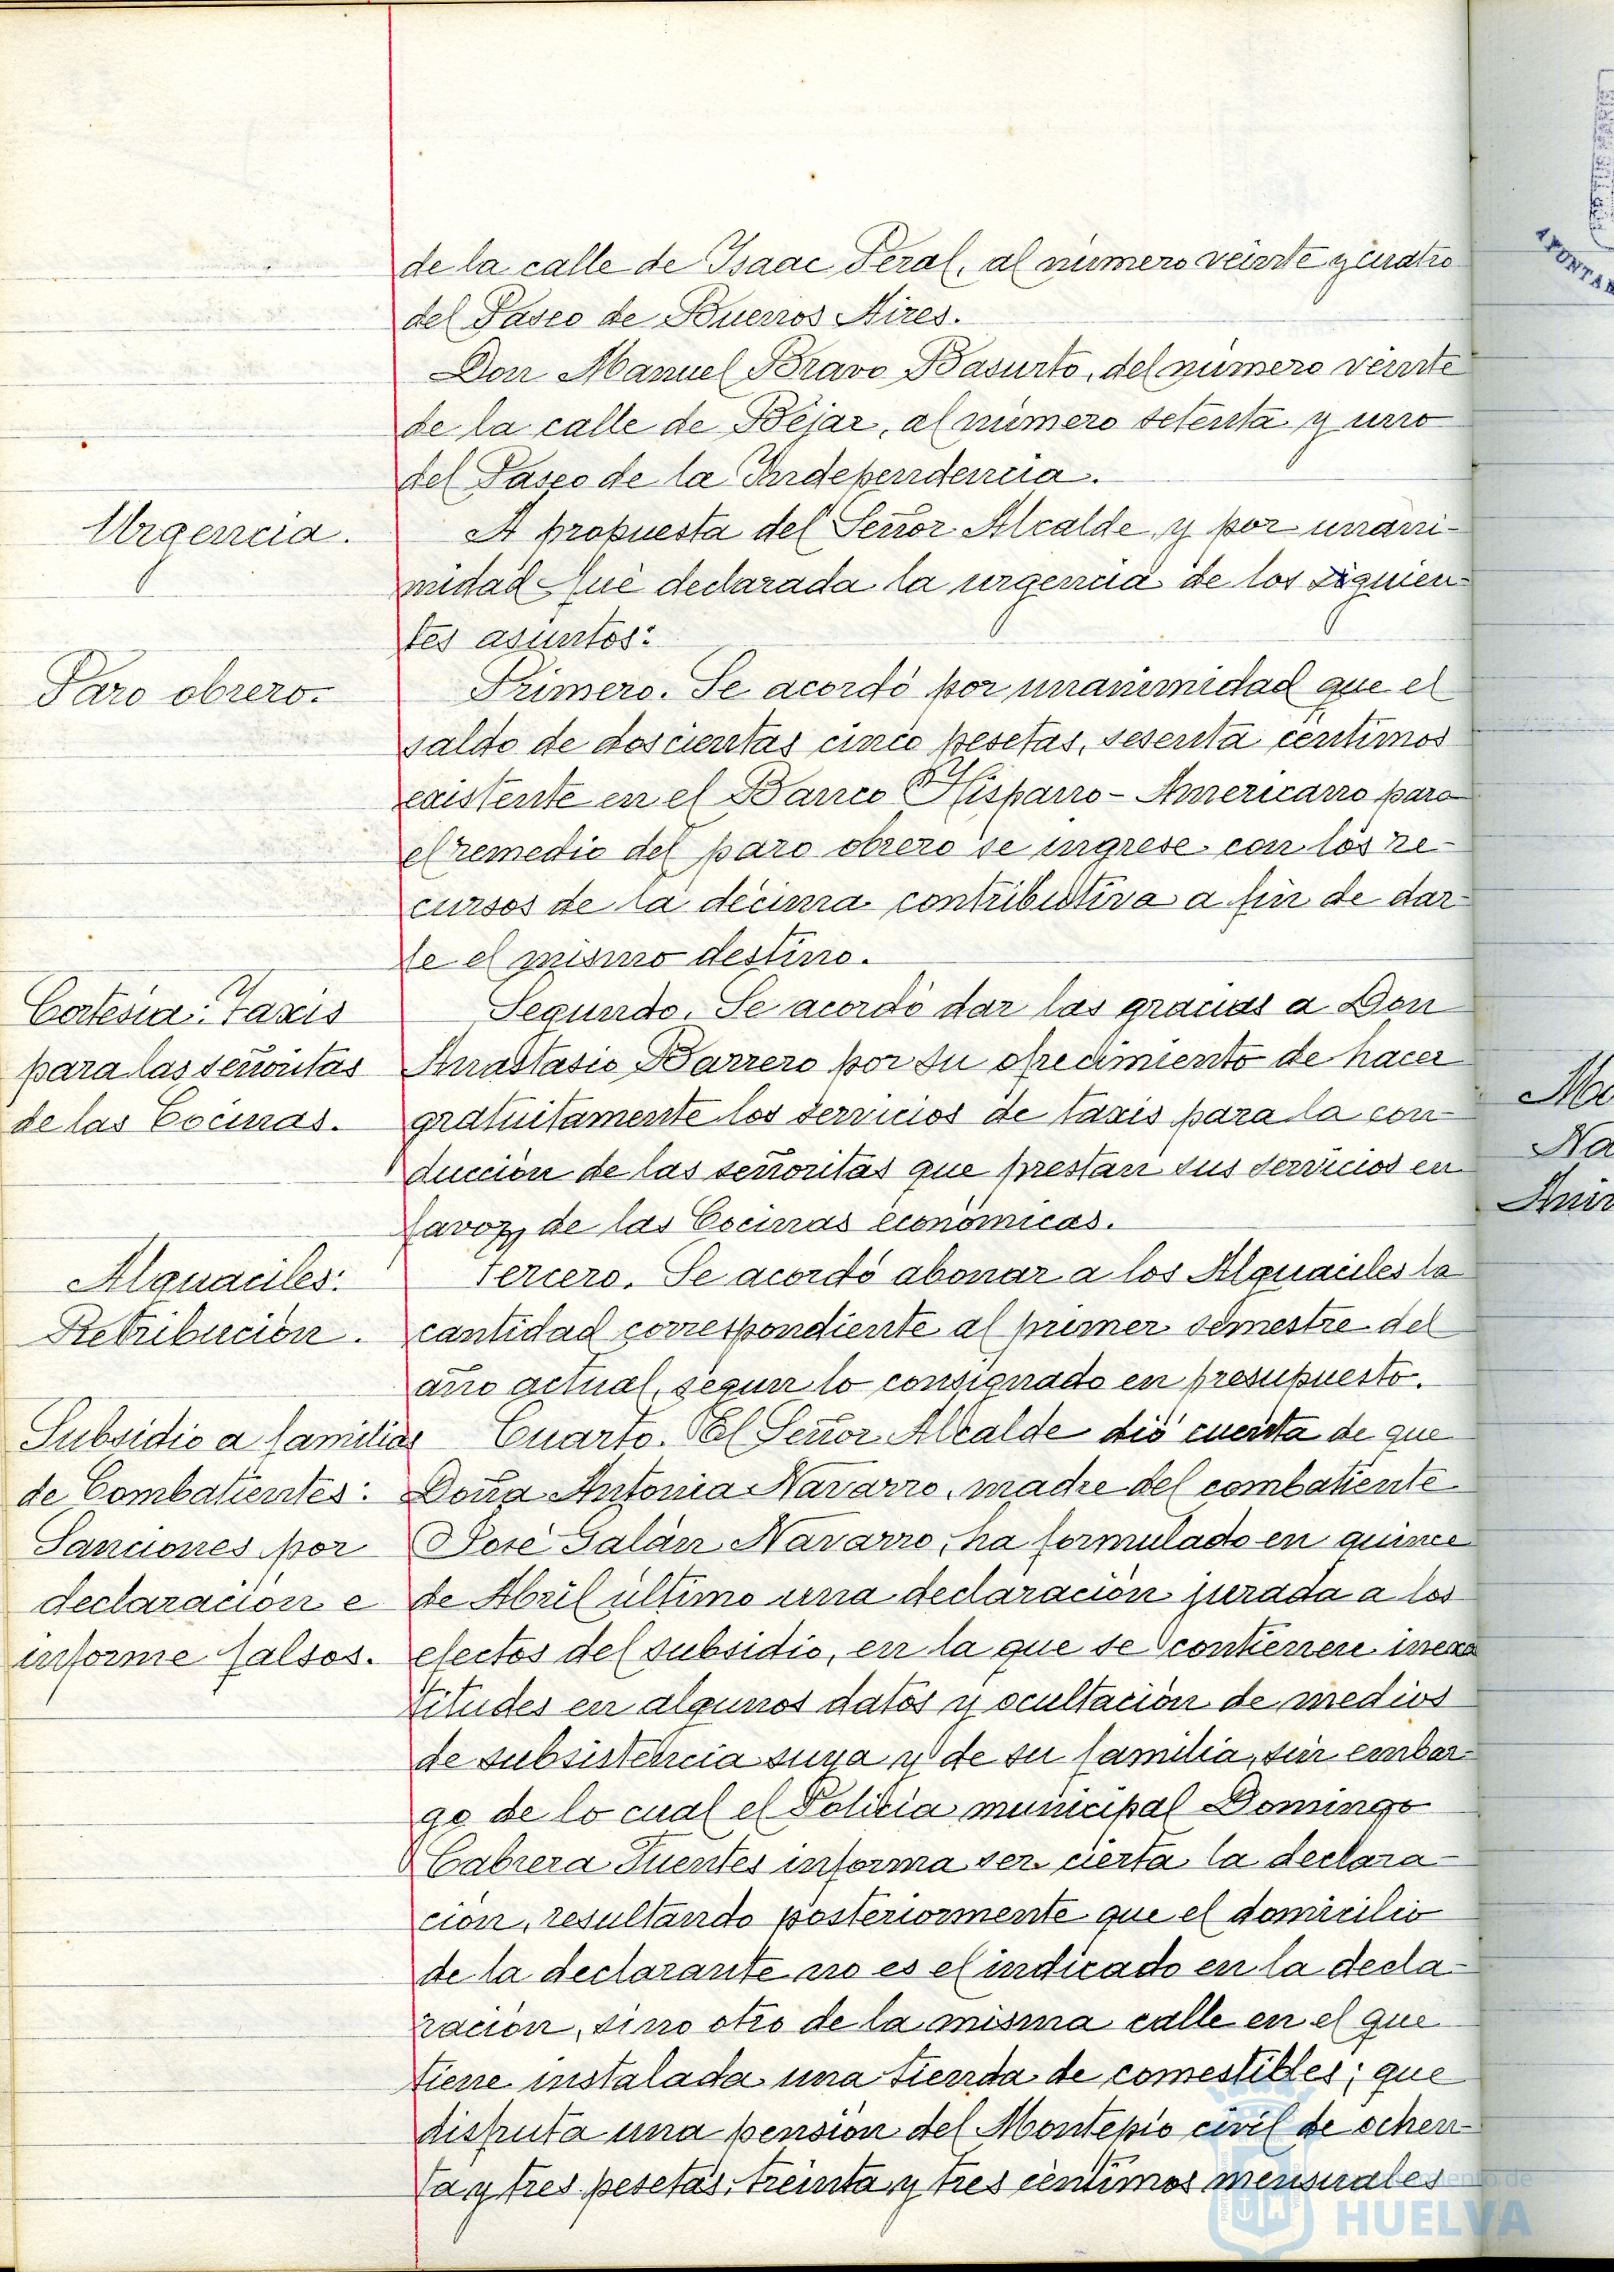 de la calle de Isaac Peral, al número veinte y cuatro
del Paseo de Buenos Aires.
Don Manuel Bravo Basurto, del número veinte
de la calle de Béjar, al número setenta y uno
del Paseo de la Independencia.
Urgencia.
A propuesta del Señor Alcalde y por unani-
midad fué declarada la urgencia de los siguien-
tes asuntos:
Paro obrero.
Primero. Se acordó por unanimidad que el
saldo de doscientas cinco pesetas, sesenta céntimos
existente en el Banco Hispano-Americano para
el remedio del paro obrero se ingrese con los re-
cursos de la décima contributiva a fin de dar-
le el mismo destino.
Cortesía: Taxis
para las señoritas
de las Cocinas.
Segundo. Se acordó dar las gracias a Don
Anastasio Barrero por su ofrecimiento de hacer
gratuitamente los servicios de taxis para la con-
ducción de las señoritas que prestan sus servicios en
favor de las Cocinas económicas.
Alguaciles:
Retribución.
Tercero. Se acordó abonar a los Alguaciles la
cantidad correspondiente al primer semestre del
año actual, según lo consignado en presupuesto.
Subsidio a familias
de Combatientes:
Sanciones por
declaración e
informe falsos.
Cuarto. El Señor Alcalde dió cuenta de que
Doña Antonia Navarro, madre del combatiente
José Galán Navarro, ha formulado en quince
de Abril último una declaración jurada a los
efectos del subsidio, en la que se contienen inexac
titudes en algunos datos y ocultación de medios
de subsistencia suya y de su familia, sin embar-
go de lo cual el Policía municipal Domingo
Cabrera Fuentes informa ser cierta la declara-
ción, resultando posteriormente que el domicilio
de la declarante no es el indicado en la decla-
ración, sino otro de la misma calle en el que
tiene instalada una tienda de comestibles; que
disfruta una pensión del Montepío civil de ochen-
ta y tres pesetas, treinta y tres céntimos mensuales
HUELVA